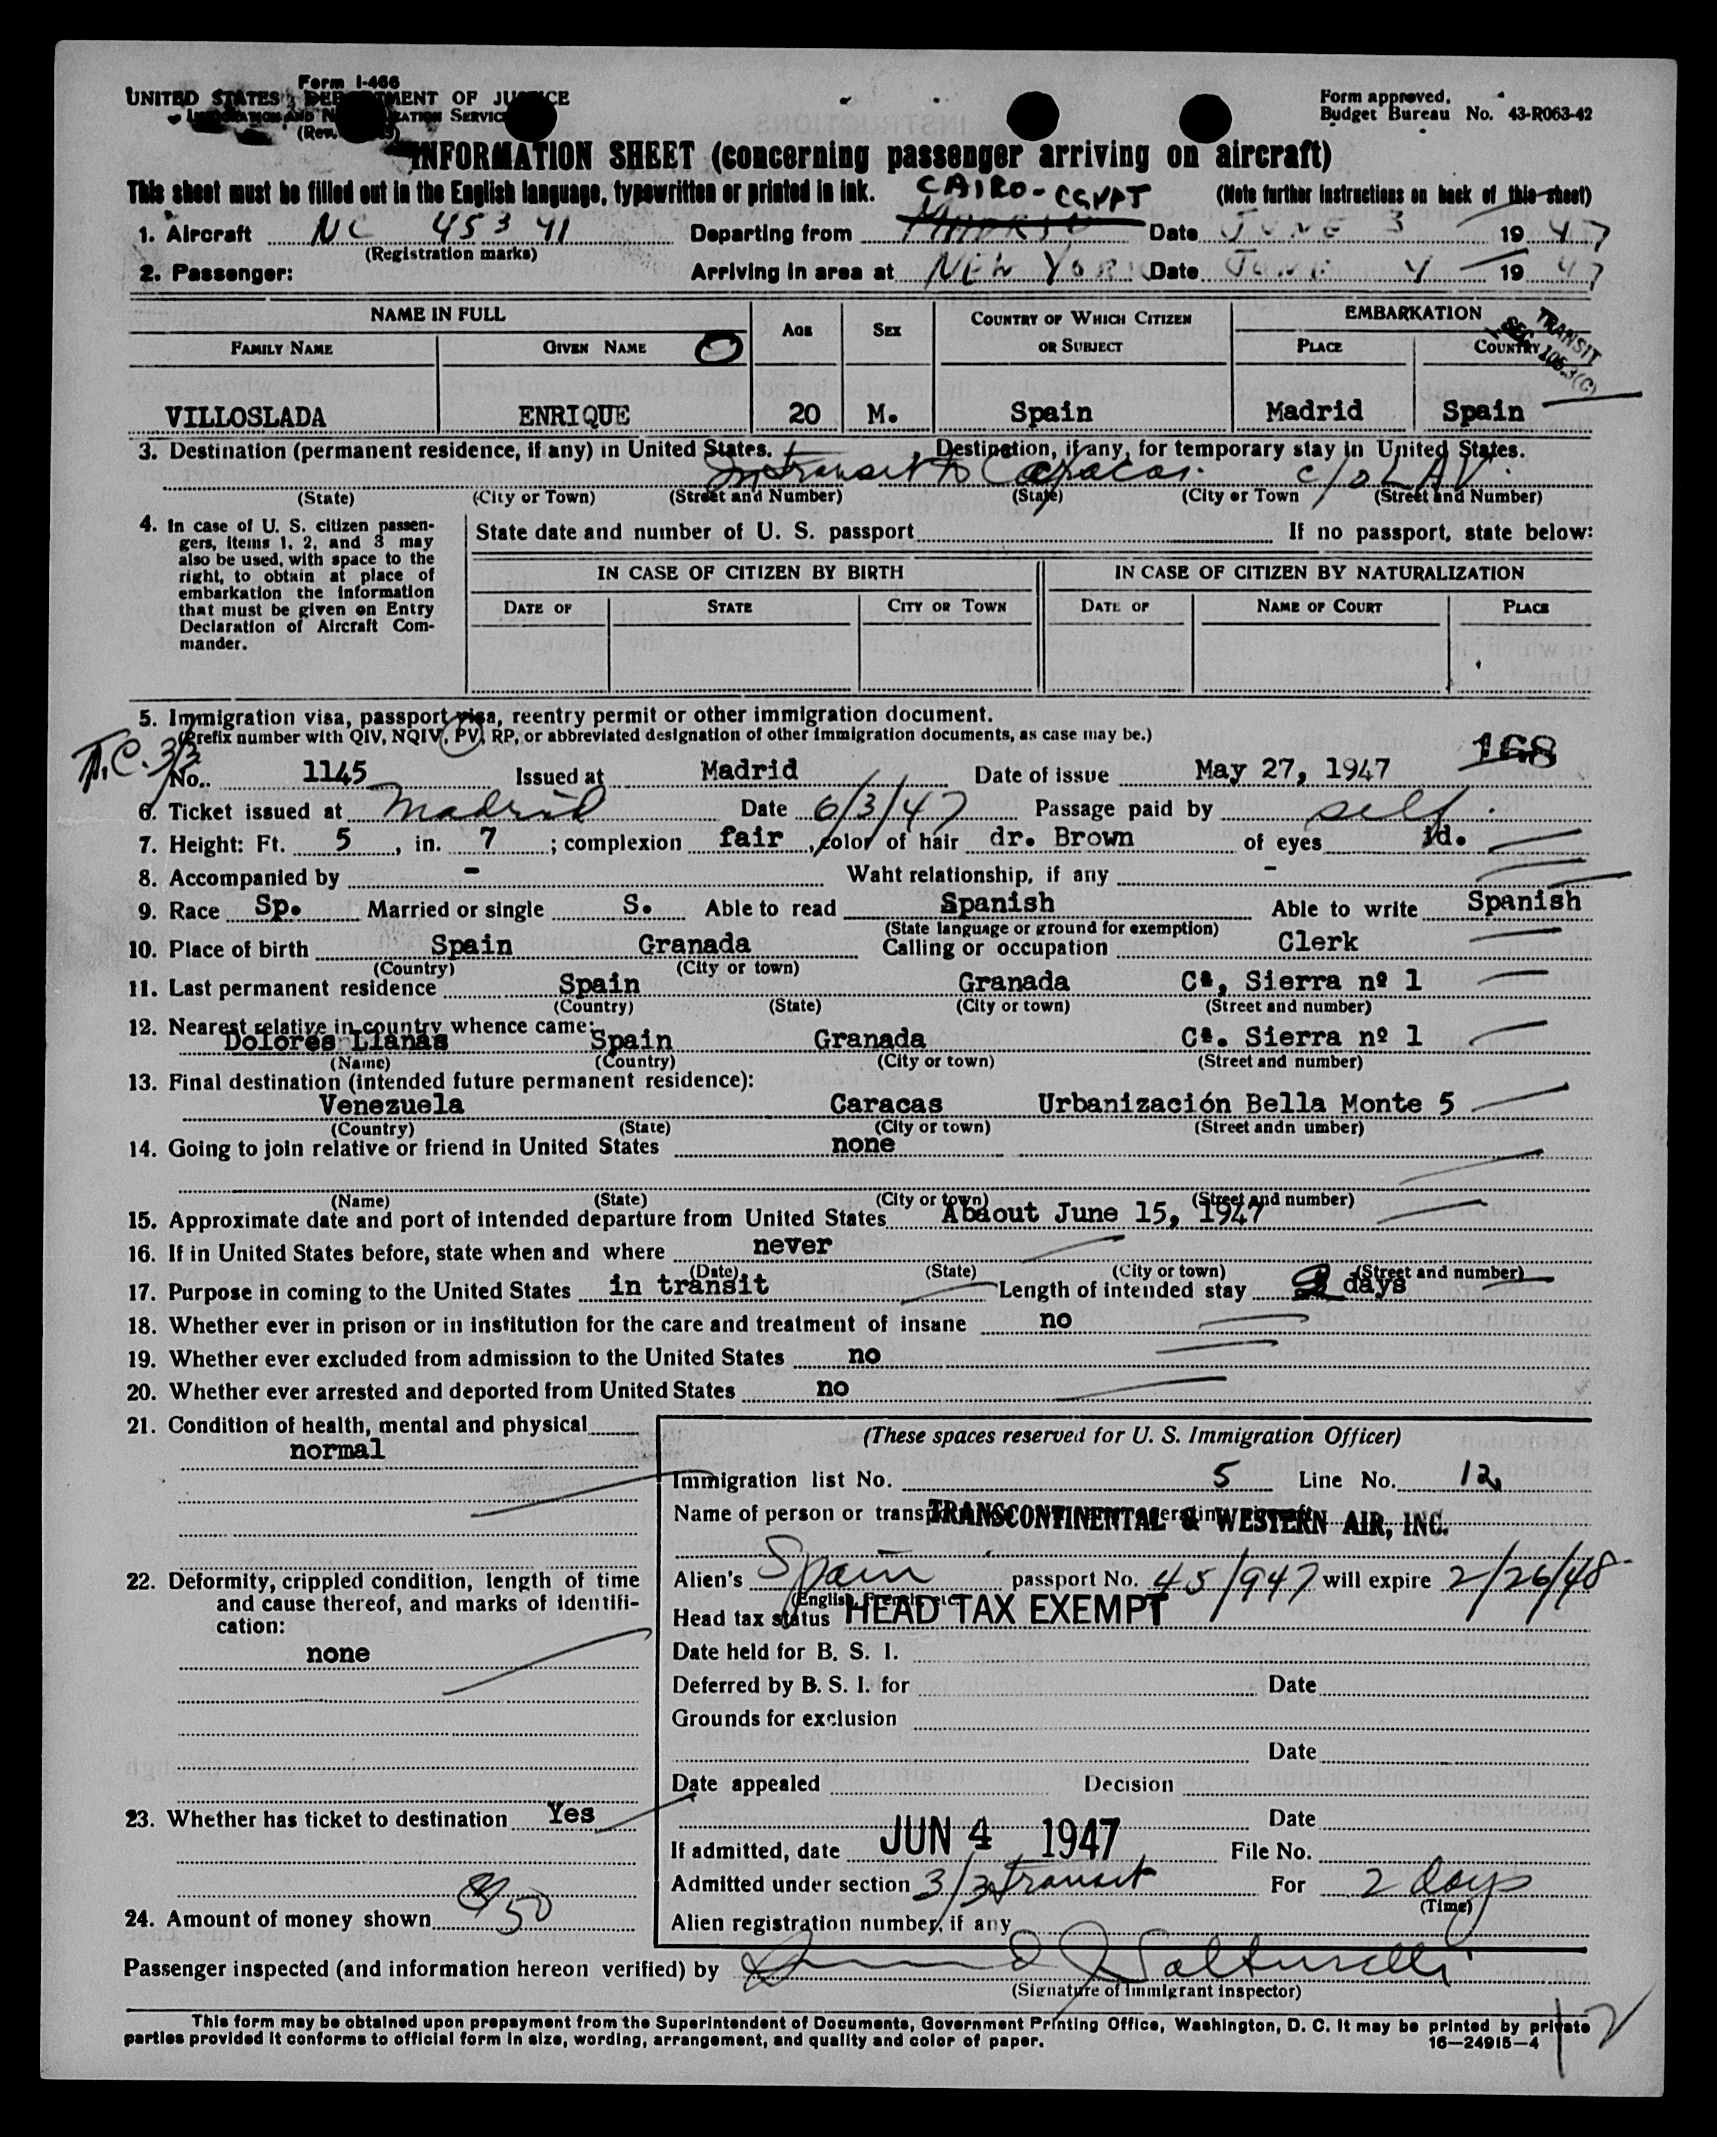 Form I-466
UNITED STATES DEPARTMENT OF JUSTICE
IMMIGRATION AND NATURALIZATION SERVICE
(Rev.
Form approved.
Budget Bureau No. 43-R063-42
INFORMATION SHEET (concerning passenger arriving on aircraft)
This sheet must be filled out in the English language, typewritten or printed in ink. (Note further instructions on back of this sheet)
CAIRO - EGYPT
1. Aircraft NC 45341 Departing from Date JUNE 3 1947
(Registration marks)
2. Passenger: Arriving in area at NEW YORK Date JUNE 4 1947
NAME IN FULL AGE SEX COUNTRY OF WHICH CITIZEN OR SUBJECT EMBARKATION
FAMILY NAME GIVEN NAME PLACE COUNTRY
TRANSIT
SEC. 105.3(C)
VILLOSLADA ENRIQUE 20 M. Spain Madrid Spain
3. Destination (permanent residence, if any) in United States. Destination, if any, for temporary stay in United States.
In transit to Caracas. c/o LAV.
(State) (City or Town) (Street and Number) (State) (City or Town (Street and Number)
4. In case of U. S. citizen passengers, items 1, 2, and 3 may also be used, with space to the right, to obtain at place of embarkation the information that must be given on Entry Declaration of Aircraft Commander.
State date and number of U. S. passport If no passport, state below:
IN CASE OF CITIZEN BY BIRTH IN CASE OF CITIZEN BY NATURALIZATION
DATE OF STATE CITY OR TOWN DATE OF NAME OF COURT PLACE
5. Immigration visa, passport visa, reentry permit or other immigration document.
(Prefix number with QIV, NQIV, PV, RP, or abbreviated designation of other immigration documents, as case may be.)
T.C. 3/3 168
No. 1145 Issued at Madrid Date of issue May 27, 1947
6. Ticket issued at Madrid Date 6/3/47 Passage paid by self.
7. Height: Ft. 5, in. 7; complexion fair, color of hair dr. Brown of eyes id.
8. Accompanied by - Waht relationship, if any -
9. Race Sp. Married or single S. Able to read Spanish Able to write Spanish
(State language or ground for exemption)
10. Place of birth Spain Granada Calling or occupation Clerk
(Country) (City or town)
11. Last permanent residence Spain Granada Cª, Sierra nº 1
(Country) (State) (City or town) (Street and number)
12. Nearest relative in country whence came:
Dolores Llanas Spain Granada Cª. Sierra nº 1
(Name) (Country) (City or town) (Street and number)
13. Final destination (intended future permanent residence):
Venezuela Caracas Urbanización Bella Monte 5
(Country) (State) (City or town) (Street andn umber)
14. Going to join relative or friend in United States none
(Name) (State) (City or town) (Street and number)
15. Approximate date and port of intended departure from United States Abaout June 15, 1947
16. If in United States before, state when and where never
(Date) (State) (City or town) (Street and number)
17. Purpose in coming to the United States in transit Length of intended stay days
18. Whether ever in prison or in institution for the care and treatment of insane no
19. Whether ever excluded from admission to the United States no
20. Whether ever arrested and deported from United States no
21. Condition of health, mental and physical
normal
22. Deformity, crippled condition, length of time and cause thereof, and marks of identification:
none
23. Whether has ticket to destination Yes
24. Amount of money shown $50
(These spaces reserved for U. S. Immigration Officer)
Immigration list No. 5 Line No. 12
Name of person or TRANSCONTINENTAL & WESTERN AIR, INC.
Alien's Spain passport No. 45/947 will expire 2/26/48
(English, French, etc.)
Head tax status HEAD TAX EXEMPT
Date held for B. S. I.
Deferred by B. S. I. for Date
Grounds for exclusion
Date
Date appealed Decision
Date
If admitted, date JUN 4 1947 File No.
Admitted under section 3/3 transit For 2 days
(Time)
Alien registration number, if any
Passenger inspected (and information hereon verified) by
(Signature of Immigrant Inspector)
This form may be obtained upon prepayment from the Superintendent of Documents, Government Printing Office, Washington, D. C. It may be printed by private
parties provided it conforms to official form in size, wording, arrangement, and quality and color of paper. 16—24915-4